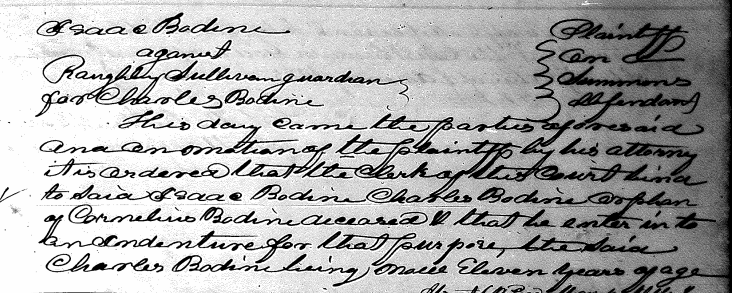 Isaac Bodine Plaintiff
against on a
Raughly Sullivan guardian Summons
for Charles Bodine Defendant
This day came the parties aforesaid
and on motion of the plaintiff by his attorney
it is ordered that the Clerk of this Court bind
to said Isaac Bodine Charles Bodine orphan
of Cornelius Bodine deceased & that he enter in to
an Indenture for that purpose, the said
Charles Bodine being now Eleven Years of age